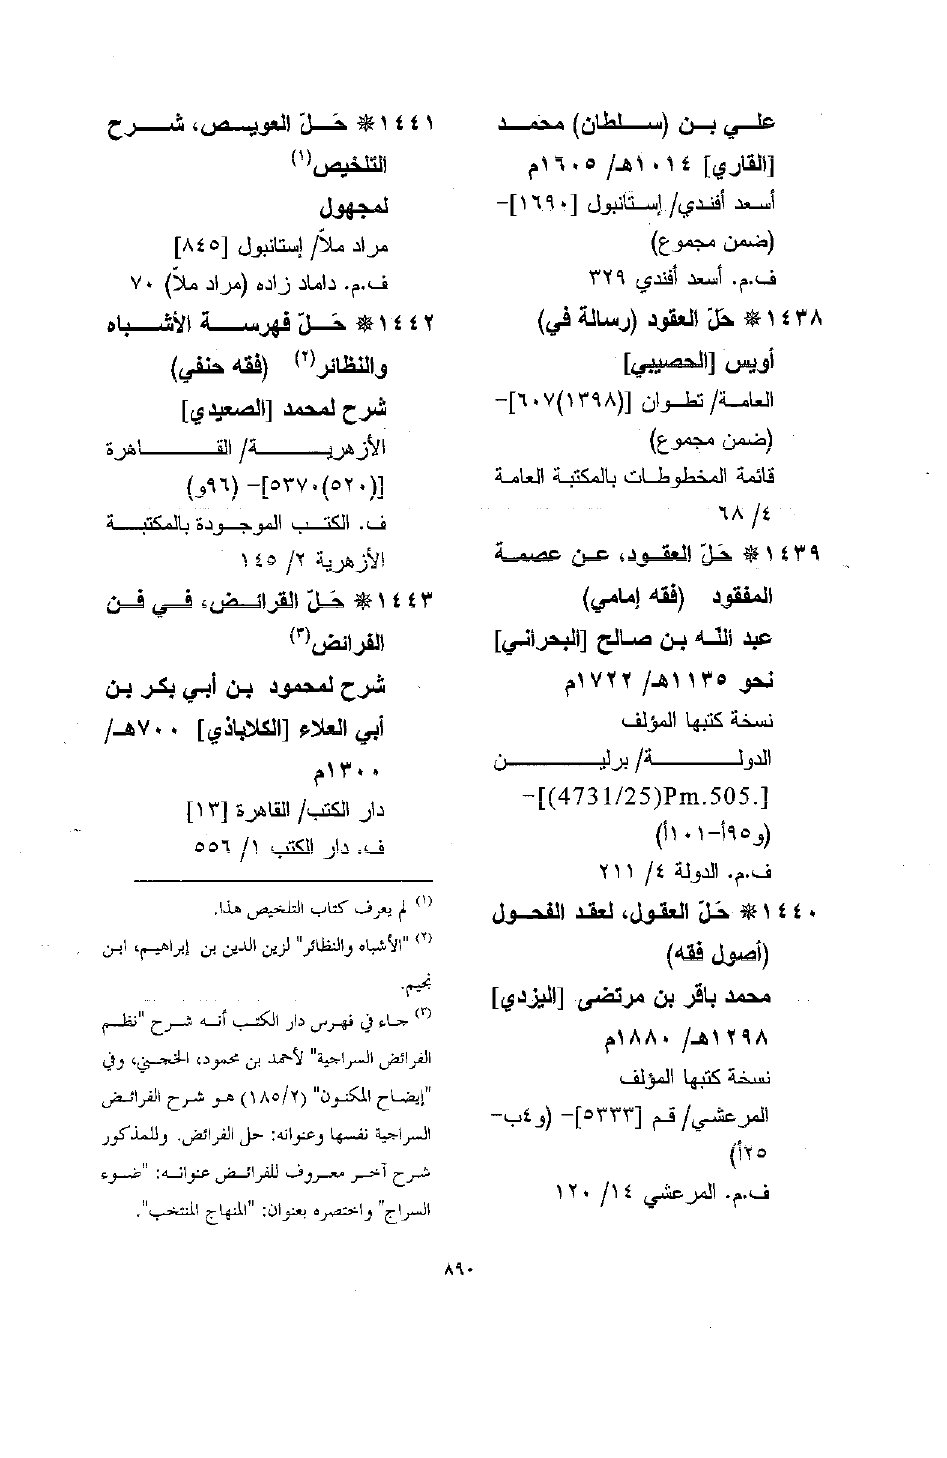 علي بن (سلطان) محمد
[القاري] ١٠١٤هـ/ ١٦٠٥م
أسعد أفندي/ إستانبول [١٦٩٠]-
(ضمن مجموع)
ف.م. أسعد أفندي ٣٢٩
١٤٣٨* حَلّ العقود (رسالة في)
أويس [الحصيبي]
العامة/ تطوان [(١٣٩٨)٦٠٧]-
(ضمن مجموع)
قائمة المخطوطات بالمكتبة العامة
٤/ ٦٨
١٤٣٩* حَلّ العقود، عن عصمة
المفقود (فقه إمامي)
عبد الله بن صالح [البحراني]
نحو ١١٣٥هـ/ ١٧٢٢م
نسخة كتبها المؤلف
الدولة/ برلين
[(4731/25)Pm.505.]-
(و٩٥أ-١٠١أ)
ف.م. الدولة ٤/ ٢١١
١٤٤٠* حَلّ العقول، لعقد الفحول
(أصول فقه)
محمد باقر بن مرتضى [اليزدي]
١٢٩٨هـ/ ١٨٨٠م
نسخة كتبها المؤلف
المرعشي/ قم [٥٣٣٣]- (و٤ب-
٢٥أ)
ف.م. المرعشي ١٤/ ١٢٠
١٤٤١* حَلّ العويص، شرح
التلخيص(١)
لمجهول
مراد ملاّ/ إستانبول [٨٤٥]
ف.م. داماد زاده (مراد ملاّ) ٧٠
١٤٤٢* حَلّ فهرسة الأشباه
والنظائر(٢) (فقه حنفي)
شرح لمحمد [الصعيدي]
الأزهرية/ القاهرة
[(٥٢٠)٥٣٧٠]- (٩٦و)
ف. الكتب الموجودة بالمكتبة
الأزهرية ٢/ ١٤٥
١٤٤٣* حَلّ القرائض، في فن
الفرائض(٣)
شرح لمحمود بن أبي بكر بن
أبي العلاء [الكلاباذي] ٧٠٠هـ/
١٣٠٠م
دار الكتب/ القاهرة [١٣]
ف. دار الكتب ١/ ٥٥٦
(١) لم يعرف كتاب التلخيص هذا.
(٢) "الأشباه والنظائر" لزين الدين بن إبراهيم، ابن
نجيم.
(٣) جاء في فهرس دار الكتب أنه شرح "نظم
الفرائض السراجية" لأحمد بن محمود، الخجبي، وفي
"إيضاح المكنون" (١٨٥/٢) هو شرح الفرائض
السراجية نفسها وعنوانه: حل الفرائض. وللمذكور
شرح آخر معروف للفرائض عنوانه: "ضوء
السراج" واختصره بعنوان: "المنهاج المنتخب".
٨٩٠